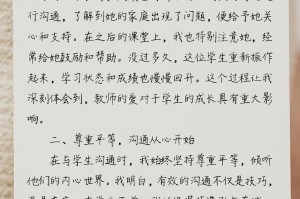 行沟通，了解到她的家庭出现了问题，便给予她关
心和支持。在之后的课堂上，我也特别注意她，经
常给她鼓励和帮助。没过多久，这位学生重新振作
起来，学习状态和成绩也慢慢回升。这个过程让我
深刻体会到，教师的爱对于学生的成长具有重大影
响。
二、尊重平等，沟通从心开始
在与学生沟通时，我始终坚持尊重平等，倾听
他们的内心世界。我明白，有效的沟通不仅是技巧，